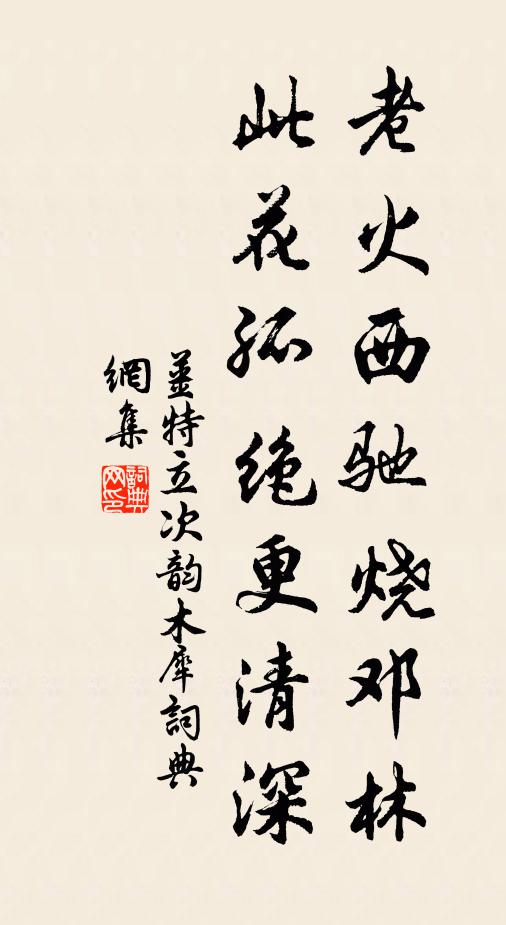 老火西驰烧邓林
此花孤绝更清深
姜特立次韵木犀詞典
網集
詞典网印